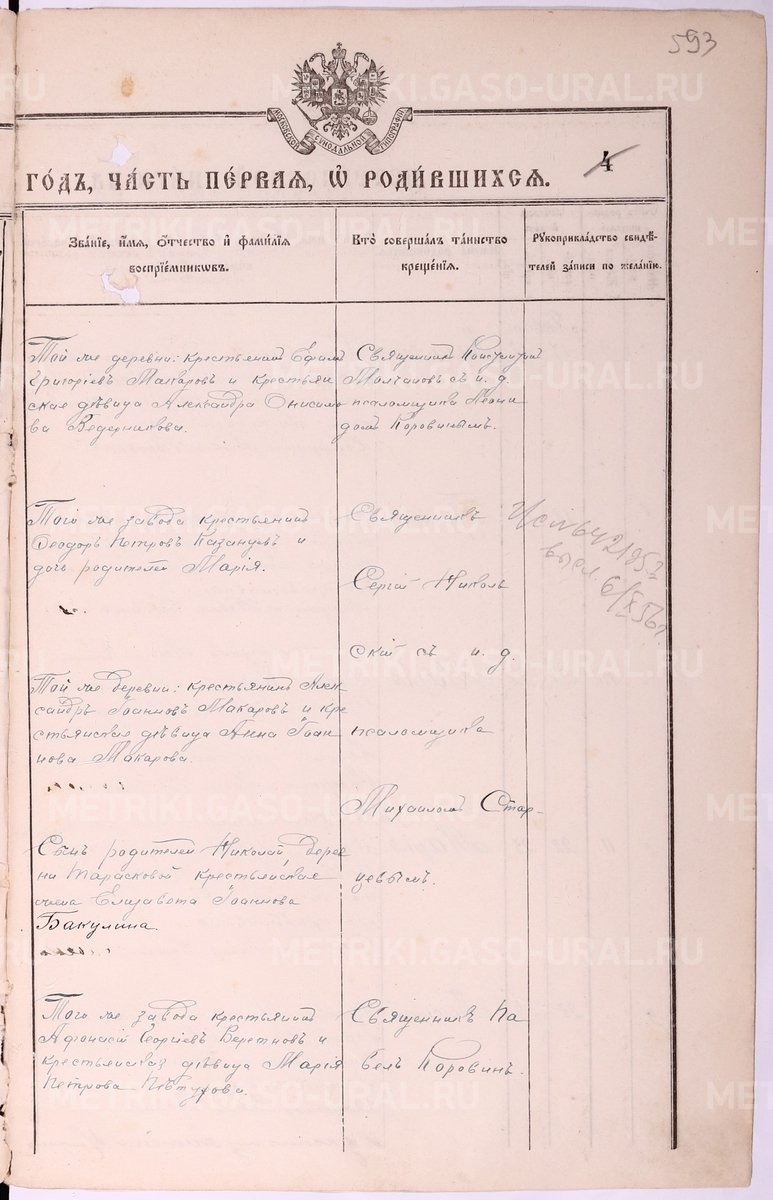 593
МОСКОВСКОЙ СѴНОДАЛЬНОЙ ТИПОГРАФІИ
4
ГО́ДЪ, ЧА́СТЬ ПЕ́РВАЯ, Ѡ҆ РОДИ́ВШИХСѦ.
Зва́нїе, и҆́мѧ, ѻ҆́тчество и҆ фами́лїѧ
воспрїе́мникѡвъ.
Кто̀ соверша́лъ та́инство
креще́нїѧ.
Рꙋкоприкла́дство свидѣ́-
телей за́писи по жела́нїю.
Той же деревни: крестьянинъ Ефимъ
Григоріевъ Макаровъ и крестьян
ская дѣвица Александра Онисимо
ва Ведерникова.
Священникъ Константинъ
Молчановъ съ и. д.
псаломщика Леони
домъ Коровинымъ.
Того же завода крестьянинъ
Ѳеодоръ Петровъ Казанцевъ и
дочь родителей Марія.
Священникъ
Сергій Николь
скій съ и. д.
псаломщика
Михаиломъ Стар-
цевымъ.
выл. 6/X 56 г.
Той же деревни: крестьянинъ Алек
сандръ Іоанновъ Макаровъ и кре
стьянская дѣвица Анна Іоан
нова Макарова.
Сынъ родителей Николай, дерев
ни Тарасковой крестьянская
жена Елизавета Іоаннова
Бакулина.
Того же завода крестьянинъ
Афонасій Георгіевъ Веретновъ и
крестьянская дѣвица Марія
Петрова Пѣтухова.
Священникъ Па
велъ Коровинъ.
METRIKI.GASO-URAL.RU